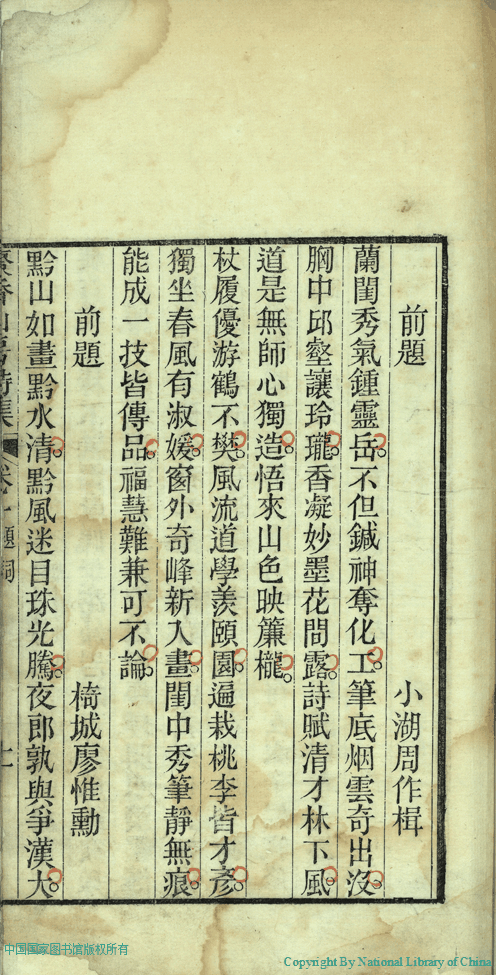 前題　小湖周作楫
蘭閨秀氣鍾靈岳不但鍼神奪化工筆底烟雲奇出沒
胸中邱壑讓玲瓏香凝妙墨花間露詩賦清才林下風
道是無師心獨造悟來山色映簾櫳
杖履優游鶴不樊風流道學羨頤園遍栽桃李皆才彥
獨坐春風有淑媛窗外奇峰新入畫閨中秀筆靜無痕
能成一技皆傳品福慧難兼可不論
前題　椅城廖惟勳
黔山如畫黔水清黔風迷目珠光騰夜郎孰與爭漢大
山房詩集　卷　題詞
中国国家图书馆版权所有
Copyright By National Library of China